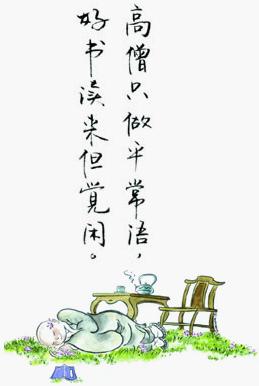 高僧只做平常语，
好书读来但觉困。